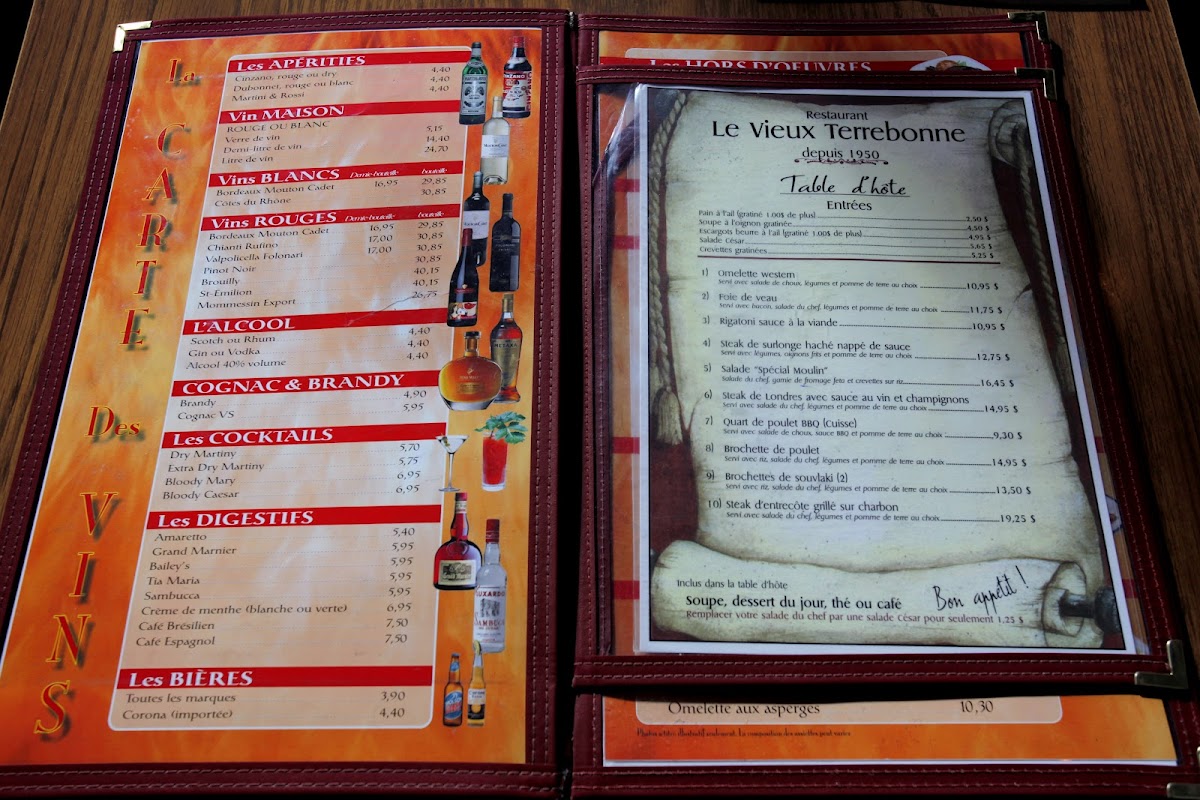 La CARTE Des VINS
Les APÉRITIFS
Cinzano, rouge ou dry 4,40
Dubonnet, rouge ou blanc 4,40
Martini & Rossi 4,40
Vin MAISON
ROUGE OU BLANC
Verre de vin 5,15
Demi-litre de vin 14,40
Litre de vin 24,70
Vins BLANCS Demie-bouteille bouteille
Bordeaux Mouton Cadet 16,95 29,85
Côtes du Rhône 30,85
Vins ROUGES Demie-bouteille bouteille
Bordeaux Mouton Cadet 16,95 29,85
Chianti Rufino 17,00 30,85
Valpolicella Folonari 17,00 30,85
Pinot Noir 30,85
Brouilly 40,15
St-Émilion 40,15
Mommessin Export 26,75
L'ALCOOL
Scotch ou Rhum 4,40
Gin ou Vodka 4,40
Alcool 40% volume 4,40
COGNAC & BRANDY
Brandy 4,90
Cognac VS 5,95
Les COCKTAILS
Dry Martiny 5,70
Extra Dry Martiny 5,75
Bloody Mary 6,95
Bloody Caesar 6,95
Les DIGESTIFS
Amaretto 5,40
Grand Marnier 5,95
Bailey's 5,95
Tia Maria 5,95
Sambucca 5,95
Crème de menthe (blanche ou verte) 6,95
Café Brésilien 7,50
Café Espagnol 7,50
Les BIÈRES
Toutes les marques 3,90
Corona (importée) 4,40
Les HORS D'OEUVRES
Restaurant
Le Vieux Terrebonne
depuis 1950
Table d'hôte
Entrées
Pain à l'ail (gratiné 1.00$ de plus) 2,50 $
Soupe à l'oignon gratinée 4,50 $
Escargots beurre à l'ail (gratiné 1.00$ de plus) 4,95 $
Salade César 5,65 $
Crevettes gratinées 5,25 $
1) Omelette western
Servi avec salade de choux, légumes et pomme de terre au choix 10,95 $
2) Foie de veau
Servi avec bacon, salade du chef, légumes et pomme de terre au choix 11,75 $
3) Rigatoni sauce à la viande 10,95 $
4) Steak de surlonge haché nappé de sauce
Servi avec légumes, oignons frits et pomme de terre au choix 12,75 $
5) Salade "Spécial Moulin"
Salade du chef, garnie de fromage feta et crevettes sur riz 16,45 $
6) Steak de Londres avec sauce au vin et champignons
Servi avec salade du chef, légumes et pomme de terre au choix 14,95 $
7) Quart de poulet BBQ (Cuisse)
Servi avec salade de choux, sauce BBQ et pomme de terre au choix 9,30 $
8) Brochette de poulet
Servi avec riz, salade du chef, légumes et pomme de terre au choix 14,95 $
9) Brochettes de souvlaki (2)
Servi avec riz, salade du chef, légumes et pomme de terre au choix 13,50 $
10) Steak d'entrecôte grillé sur charbon
Servi avec salade du chef, légumes et pomme de terre au choix 19,25 $
Inclus dans la table d'hôte
Soupe, dessert du jour, thé ou café
Bon appétit !
Remplacer votre salade du chef par une salade César pour seulement 1,25 $
Omelette aux asperges 10,30
Photos à titre illustratif seulement. La composition des assiettes peut varier